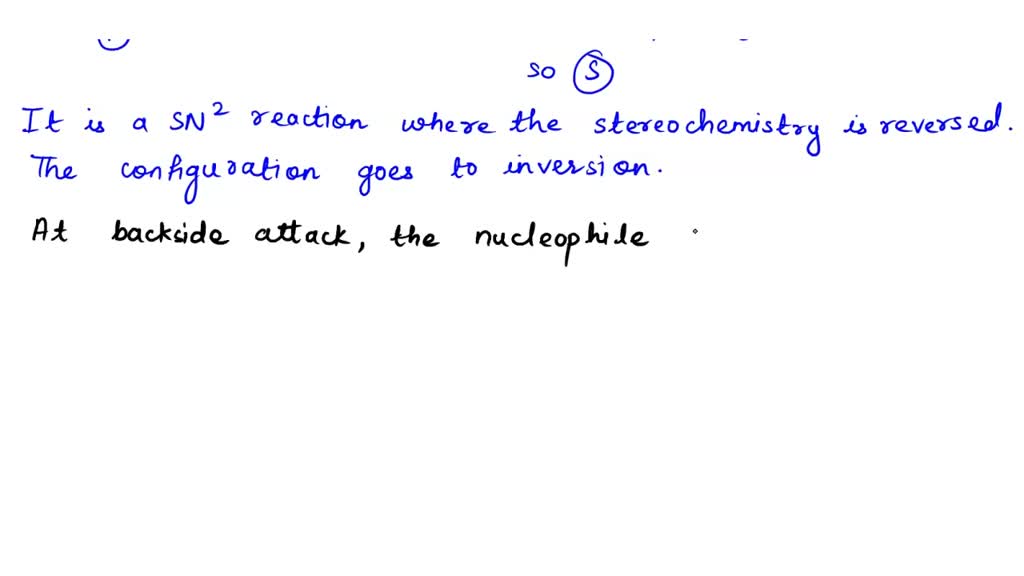 so S
It is a SN² reaction where the stereochemistry is reversed.
The configuration goes to inversion.
At backside attack, the nucleophile